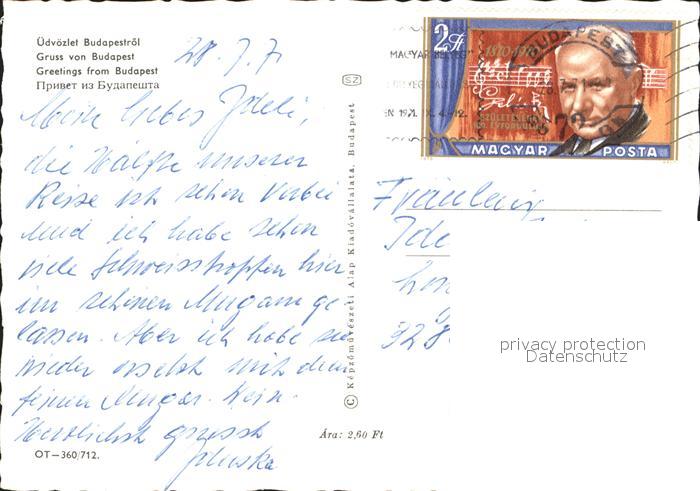 Üdvözlet Budapestről
Gruss von Budapest
Greetings from Budapest
Привет из Будапешта
28.7.71
Mein liebes Ideli,
die Hälfte unserer
Reise ist schon vorbei
und ich habe schon
viele Schweisstropfen hier
im schönen Ungarn ge-
lassen. Aber ich habe sie
wieder ersetzt mit dem
feinen Ungar. Wein.
Herzlichst grüsst
OT-360/712.
SZ
© Képzőművészeti Alap Kiadóvállalata, Budapest
Ára: 2,60 Ft
2 Ft
1870-1970
SZÜLETÉSÉNEK
ÉVFORDULÓJA
MAGYAR POSTA
BUDAPEST
72
Fräulein
Ide
328
privacy protection
Datenschutz